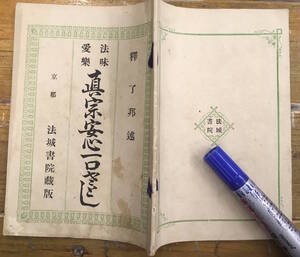 釋了邦述
法味
愛樂
真宗安心一口さとし
京都
法城書院藏版
法城
書院